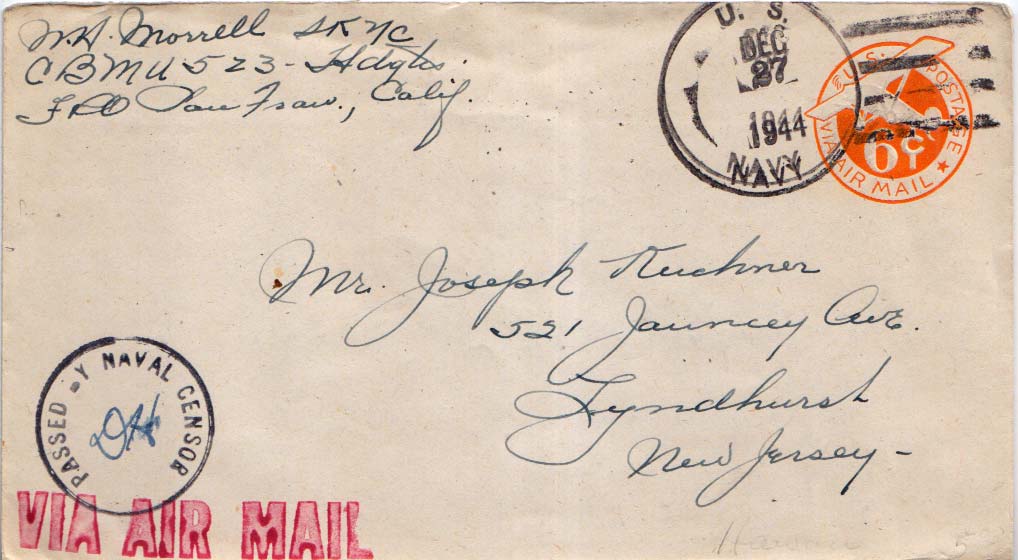 W.H. Morrell SK 1/C
CBMU 523 - Hdqts.
FPO San Fran., Calif.
U. S.
DEC
27
1944
NAVY
U.S. POSTAGE
6¢
VIA AIR MAIL
Mr. Joseph Kuchner
521 Jauncey Ave.
Lyndhurst
New Jersey -
PASSED BY NAVAL CENSOR
DH
VIA AIR MAIL